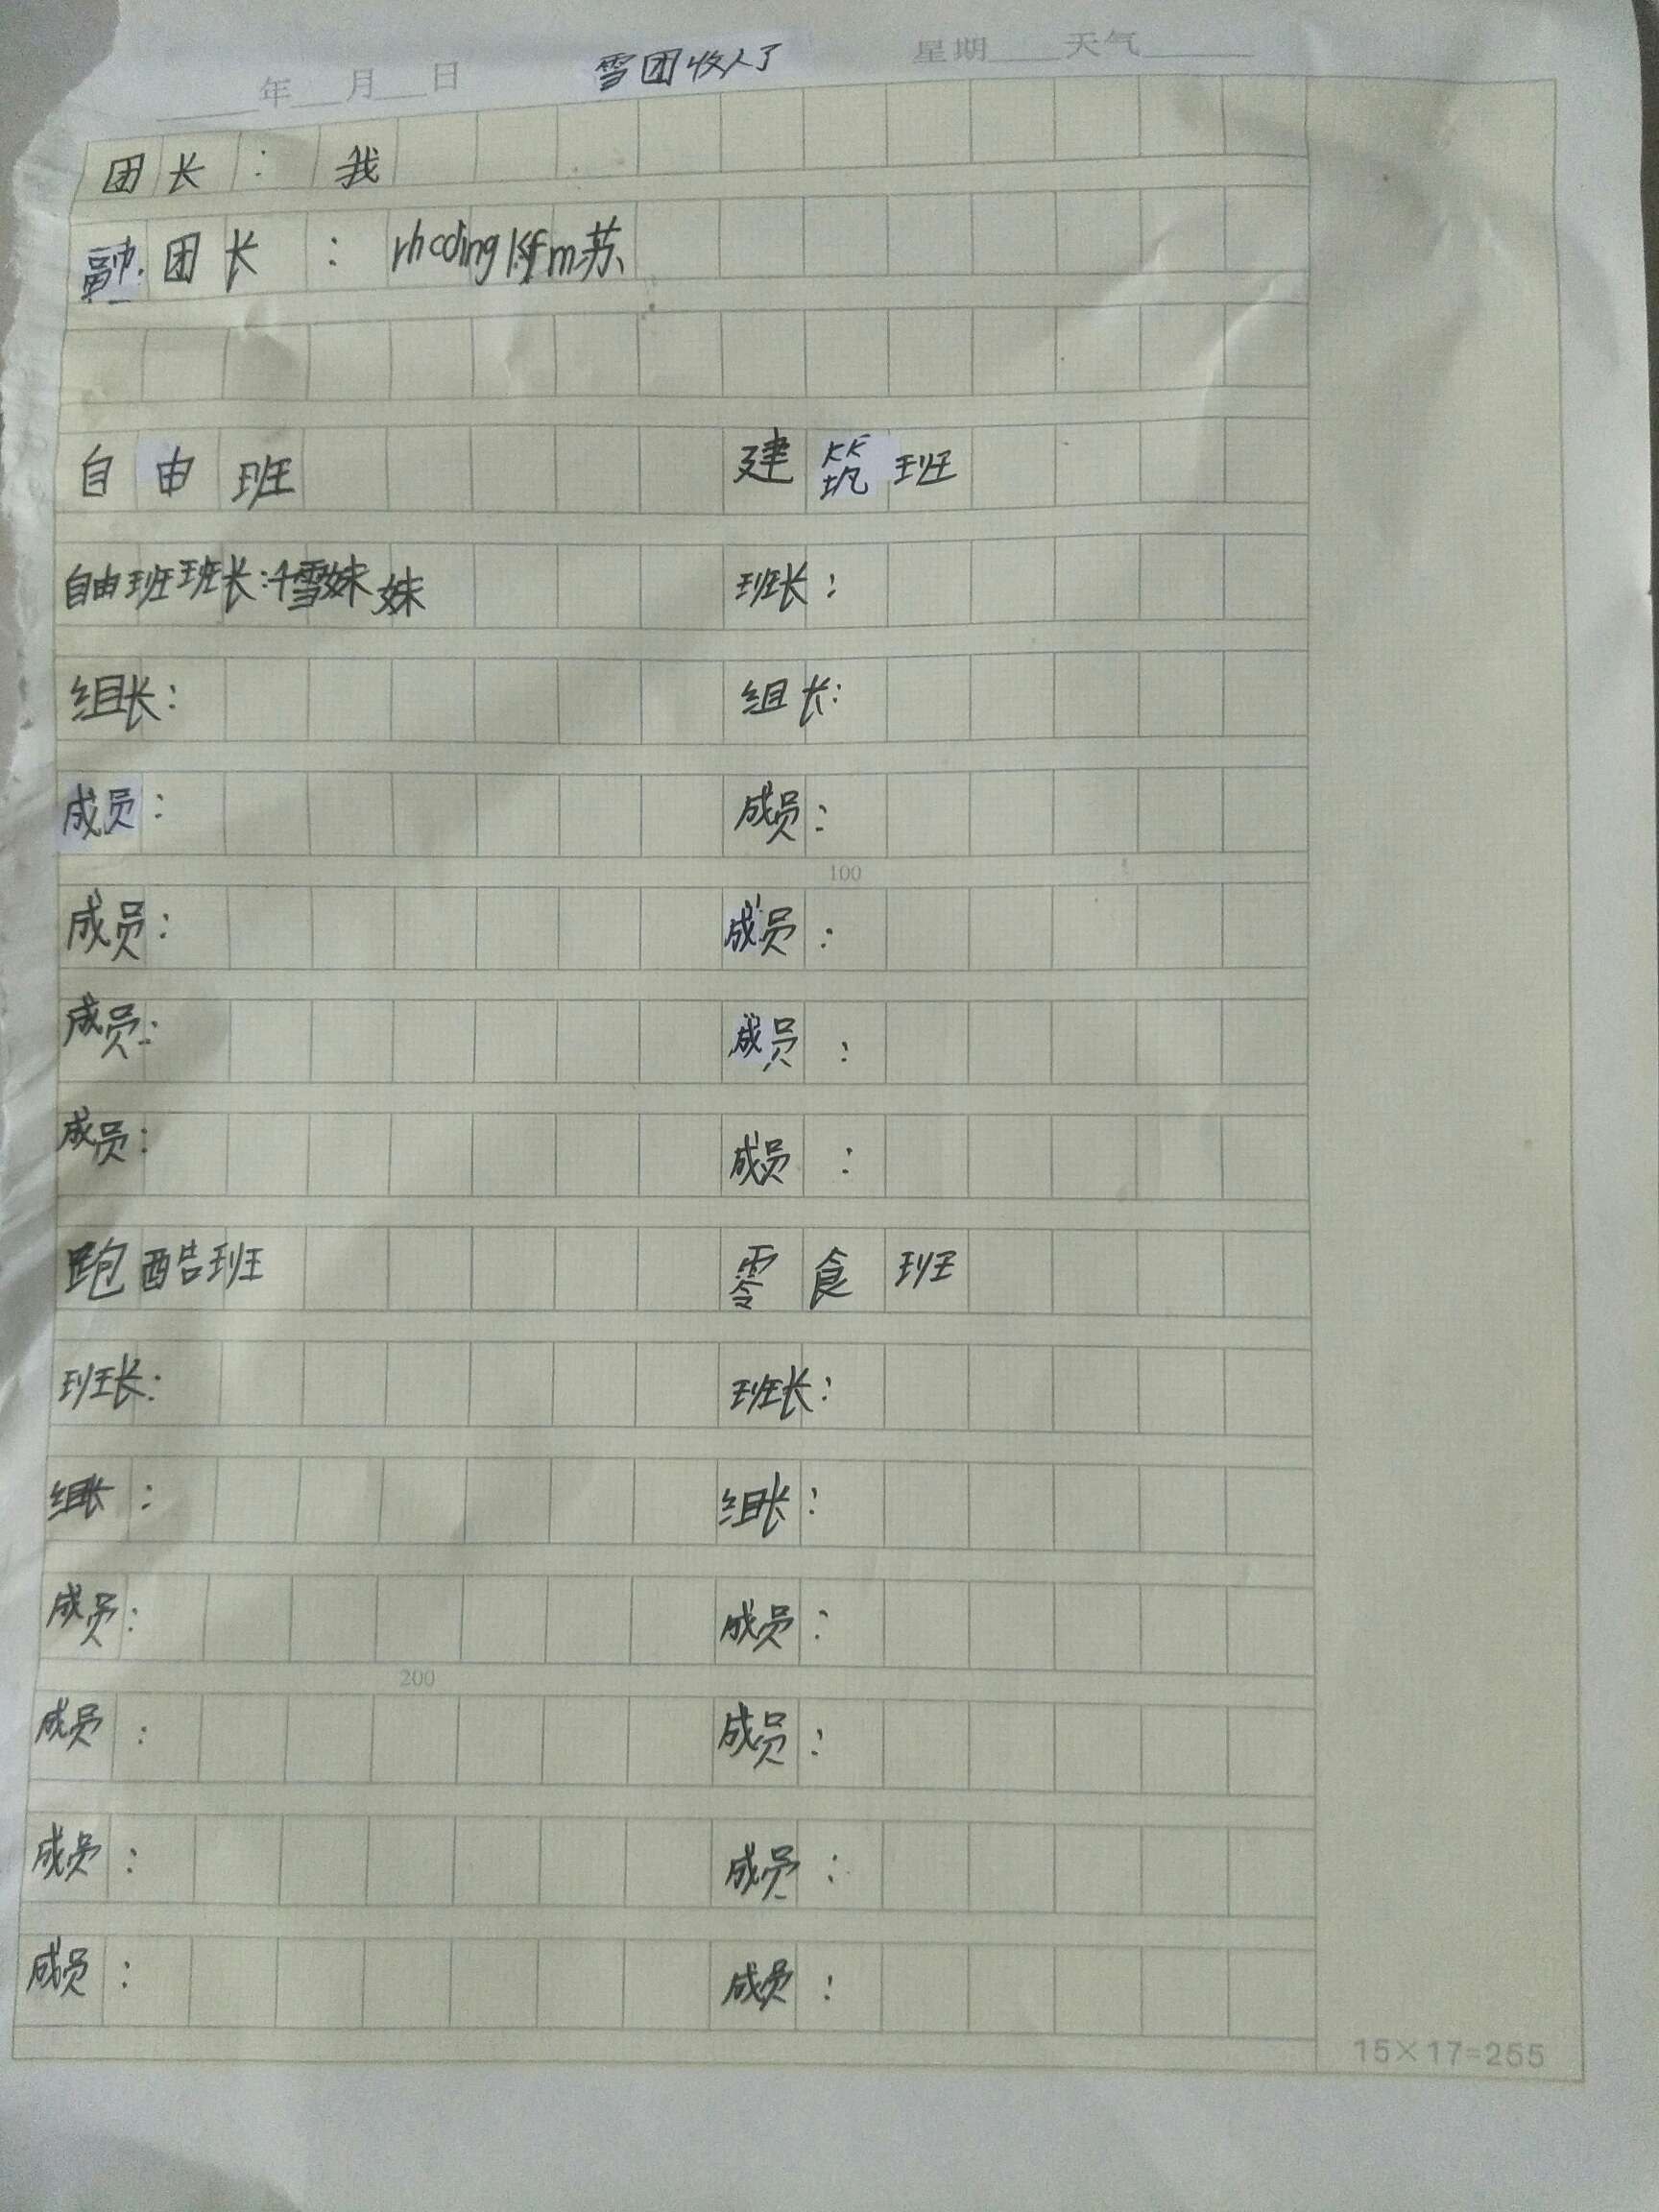 ____年__月__日 雪团收人了 星期____天气______
团长：我
副团长：苏
自由班 建筑班
自由班班长：千雪妹妹 班长：
组长： 组长：
成员： 成员：
100
成员： 成员：
成员： 成员：
成员： 成员：
跑酷班 零食班
班长： 班长：
组长： 组长：
成员： 成员：
200
成员： 成员：
成员： 成员：
成员： 成员：
15×17=255